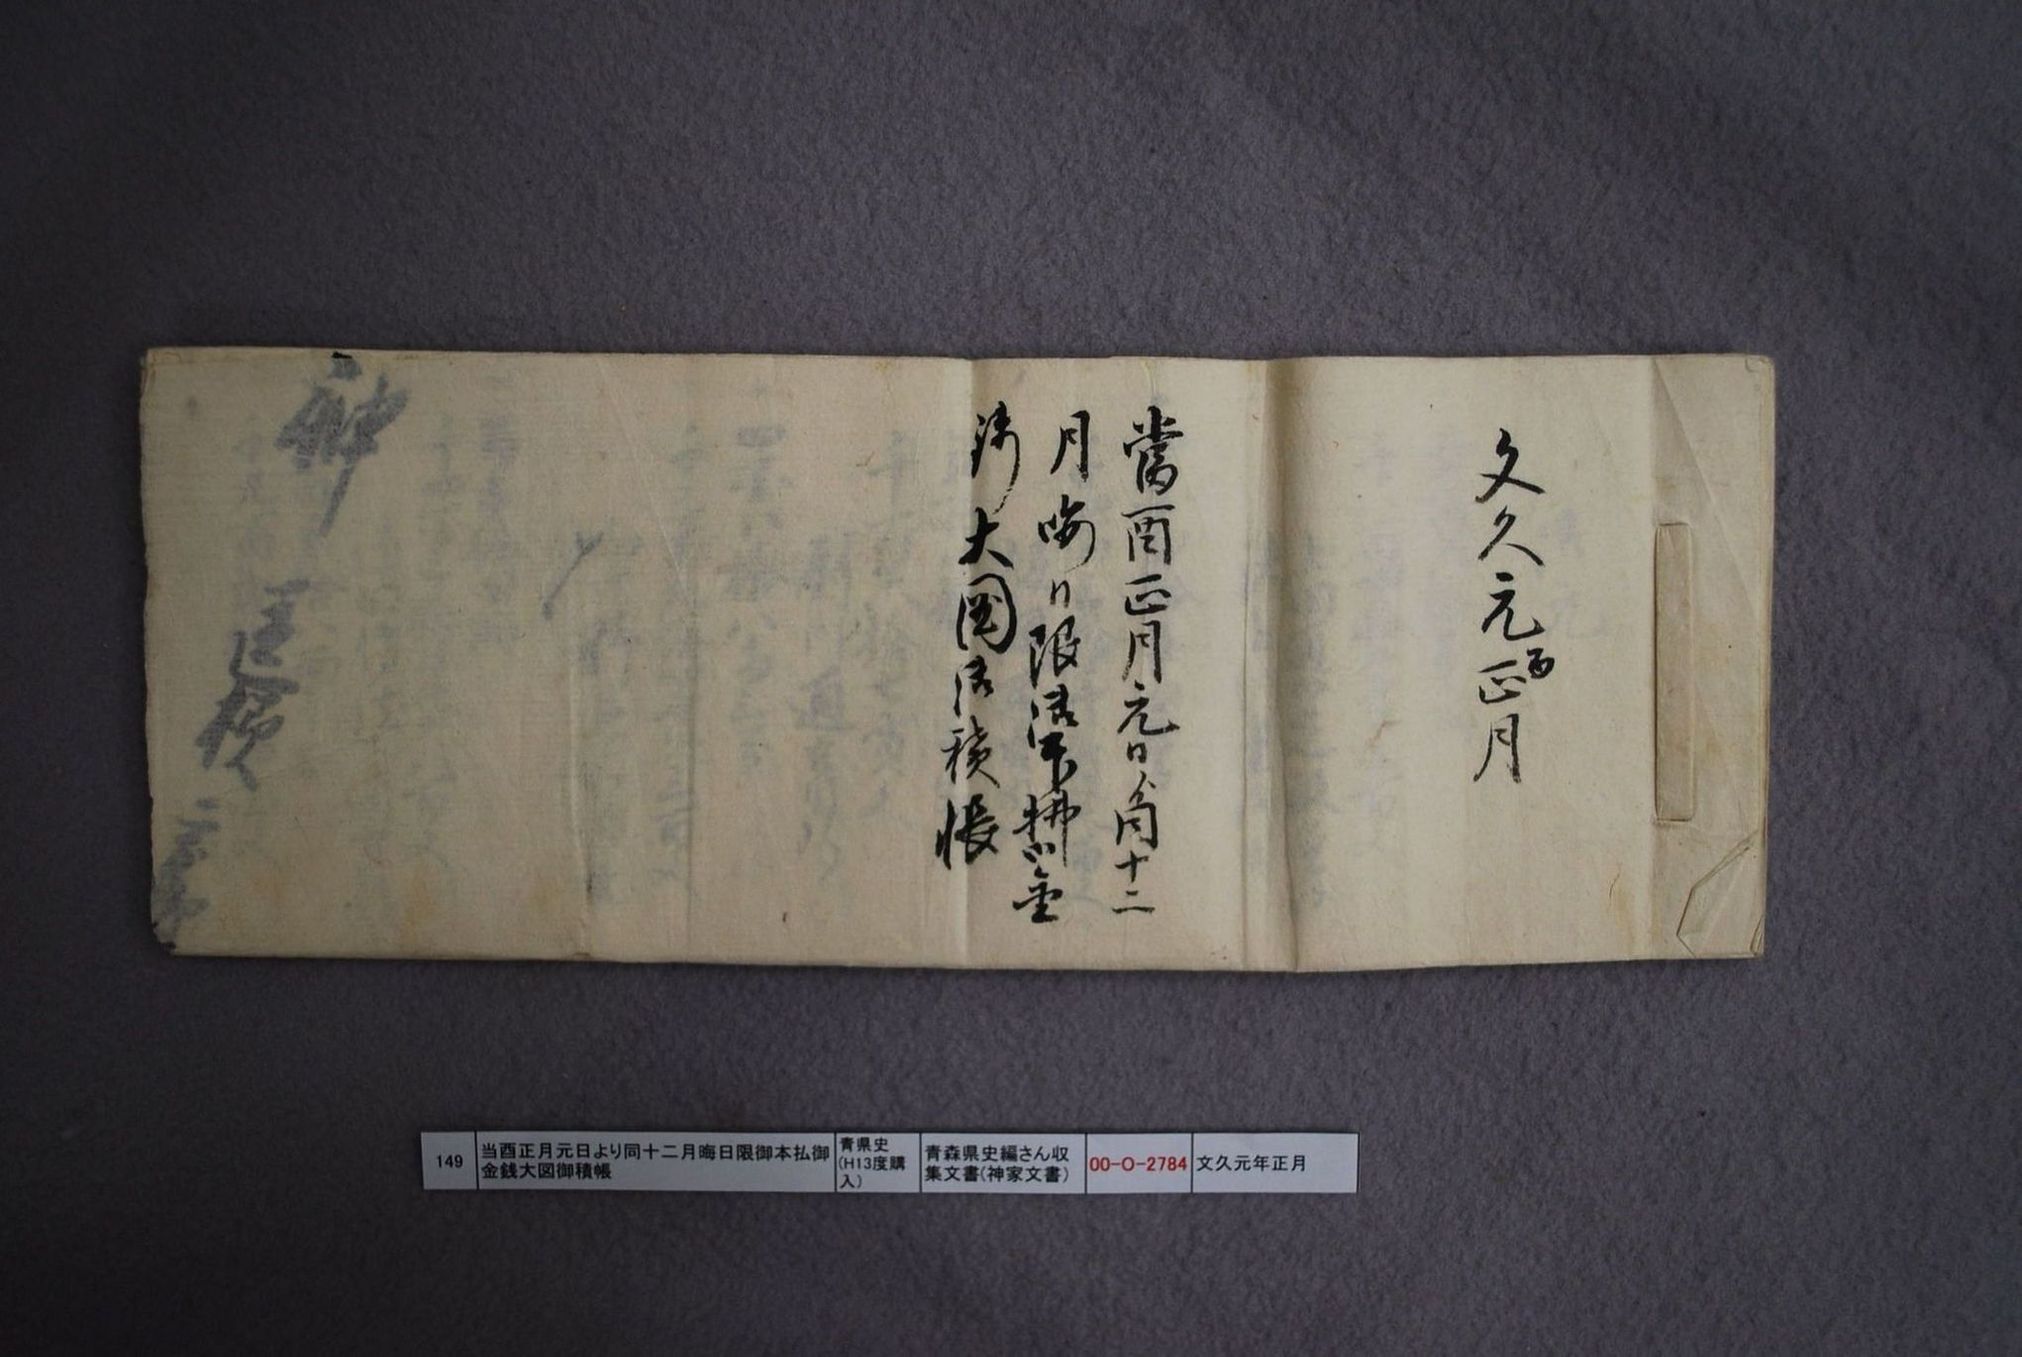 文久元酉正月
當酉正月元日ゟ同十二
月晦日限御本拂御金
銭大圖御積帳
神
149
当酉正月元日より同十二月晦日限御本払御
金銭大図御積帳
青県史
(H13度購
入)
青森県史編さん収
集文書(神家文書)
00-O-2784
文久元年正月